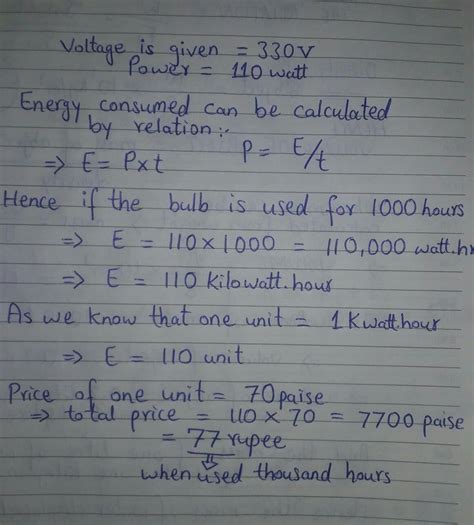 Voltage is given = 330V
Power = 110 watt
Energy consumed can be calculated
by relation:-
⇒ E = P×t P = E/t
Hence if the bulb is used for 1000 hours
⇒ E = 110×1000 = 110,000 watt.hr
⇒ E = 110 Kilowatt.hour
As we know that one unit = 1Kwatt.hour
⇒ E = 110 unit
Price of one unit = 70paise
⇒ total price = 110 × 70 = 7700 paise
= 77 rupee
when used thousand hours